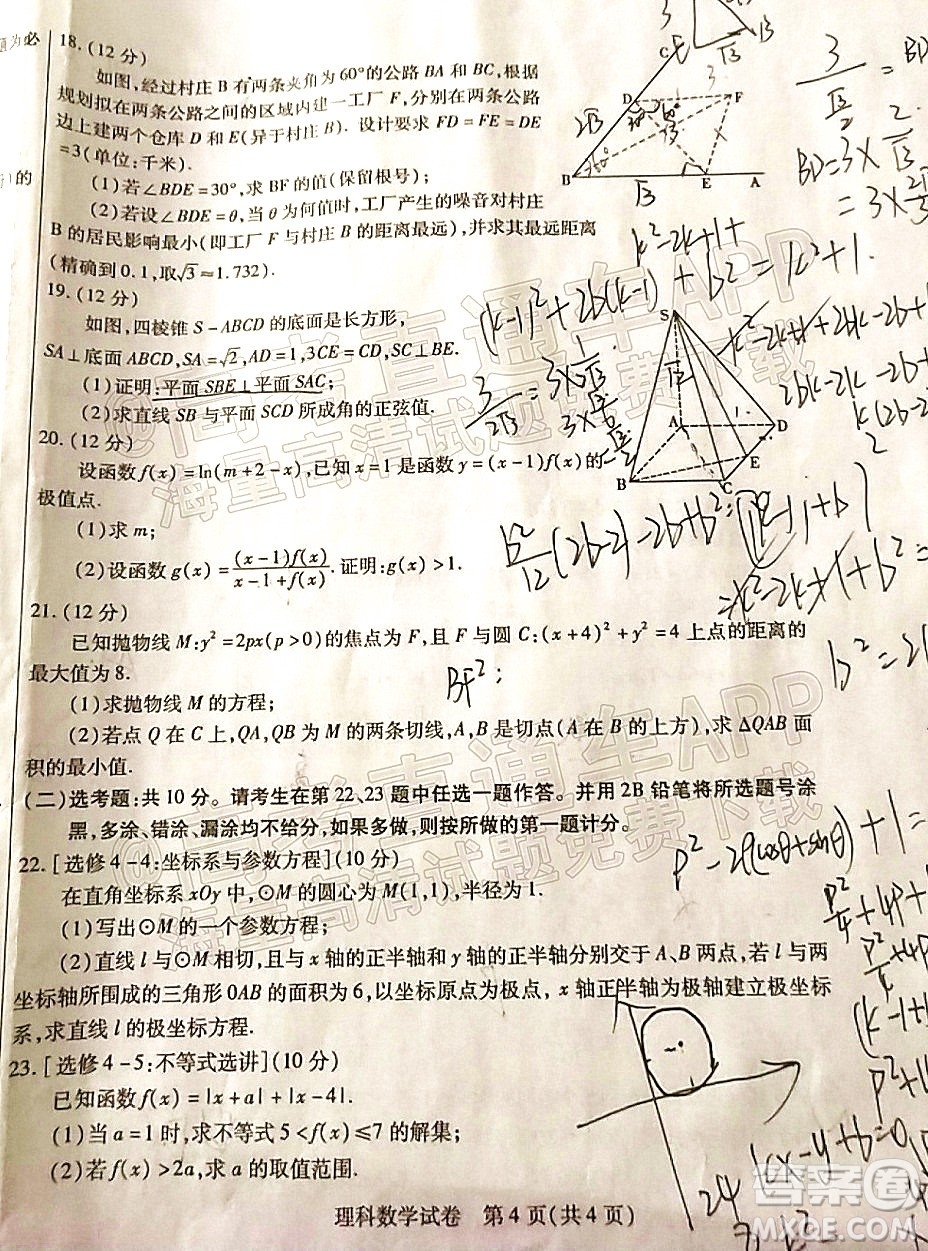 题为必
的
18.(12 分)
如图,经过村庄 B 有两条夹角为 60°的公路 BA 和 BC,根据
规划拟在两条公路之间的区域内建一工厂 F,分别在两条公路
边上建两个仓库 D 和 E(异于村庄 B). 设计要求 FD = FE = DE
=3(单位:千米).
(1)若∠BDE=30°,求 BF 的值(保留根号);
(2)若设∠BDE=θ,当 θ 为何值时,工厂产生的噪音对村庄
B 的居民影响最小(即工厂 F 与村庄 B 的距离最远),并求其最远距离
(精确到 0.1,取√3≈1.732).
C
D
F
B
E
A
19.(12 分)
如图,四棱锥 S-ABCD 的底面是长方形,
SA⊥底面 ABCD,SA=√2,AD=1,3CE=CD,SC⊥BE.
(1)证明:平面 SBE⊥平面 SAC;
(2)求直线 SB 与平面 SCD 所成角的正弦值.
S
A
D
E
B
C
20.(12 分)
设函数 f(x)=ln(m+2-x),已知 x=1 是函数 y=(x-1)f(x)的
极值点.
(1)求 m;
(2)设函数 g(x)=(x-1)f(x)/(x-1+f(x)). 证明:g(x)>1.
21.(12 分)
已知抛物线 M:y²=2px(p>0)的焦点为 F,且 F 与圆 C:(x+4)²+y²=4 上点的距离的
最大值为 8.
(1)求抛物线 M 的方程;
(2)若点 Q 在 C 上,QA,QB 为 M 的两条切线,A,B 是切点(A 在 B 的上方),求 △QAB 面
积的最小值.
(二)选考题:共 10 分。请考生在第 22、23 题中任选一题作答。并用 2B 铅笔将所选题号涂
黑,多涂、错涂、漏涂均不给分,如果多做,则按所做的第一题计分。
22.[选修 4-4:坐标系与参数方程](10 分)
在直角坐标系 xOy 中,⊙M 的圆心为 M(1,1),半径为 1.
(1)写出⊙M 的一个参数方程;
(2)直线 l 与⊙M 相切,且与 x 轴的正半轴和 y 轴的正半轴分别交于 A、B 两点,若 l 与两
坐标轴所围成的三角形 OAB 的面积为 6,以坐标原点为极点, x 轴正半轴为极轴建立极坐标
系,求直线 l 的极坐标方程.
23.[选修 4-5:不等式选讲](10 分)
已知函数 f(x)=|x+a|+|x-4|.
(1)当 a=1 时,求不等式 5<f(x)≤7 的解集;
(2)若 f(x)>2a,求 a 的取值范围.
理科数学试卷 第 4 页(共 4 页)
@高考直通车APP
海量高清试题免费下载
@高考直通车APP
海量高清试题免费下载
答案圈
MXQE.COM